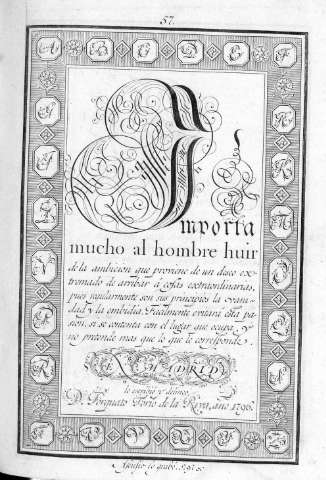 57.
A B C D E F
Importa
mucho al hombre huir
de la ambicion que proviene de un deseo ex-
tremado de arribar á cosas extraordinarias,
pues regularmente son sus principios la vani-
dad y la embidia. Facilmente evitará esta pa-
sion, si se contenta con el lugar que ocupa, y
no pretende mas que lo que le corresponde.
EN MADRID
lo escribió
D. Torquato Torio de la Riva, año 1796.
Asensio lo grabó.